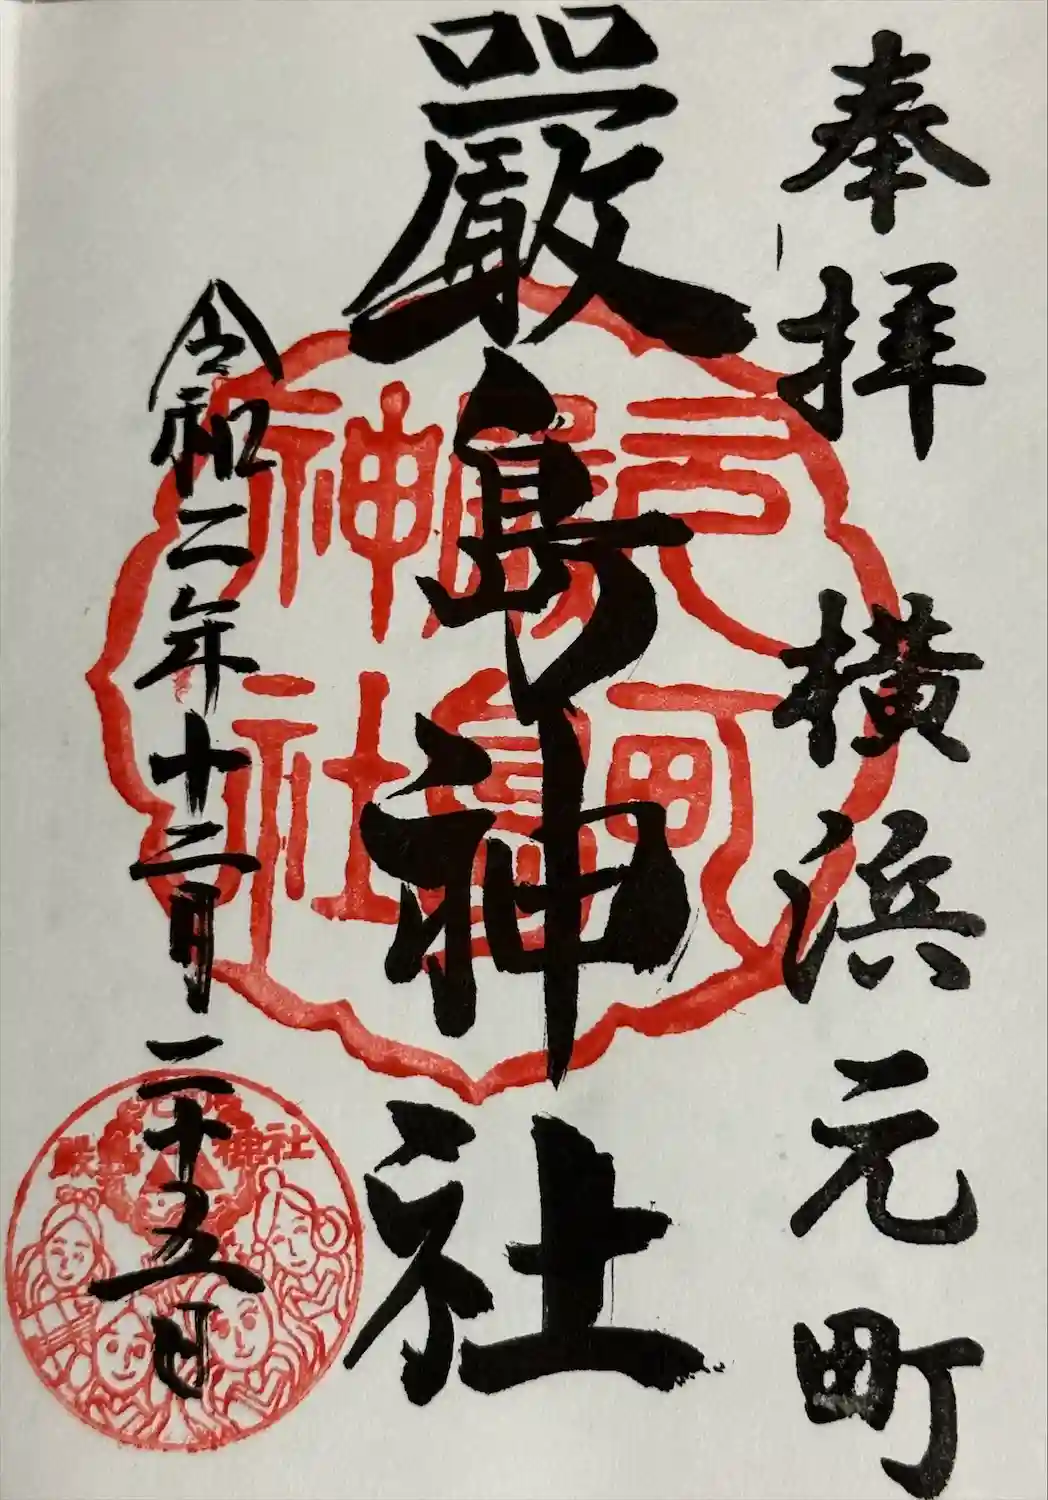 奉拝　横浜元町
嚴島神社
令和二年十二月二十五日
元町
嚴島
神社
元町
嚴島神社